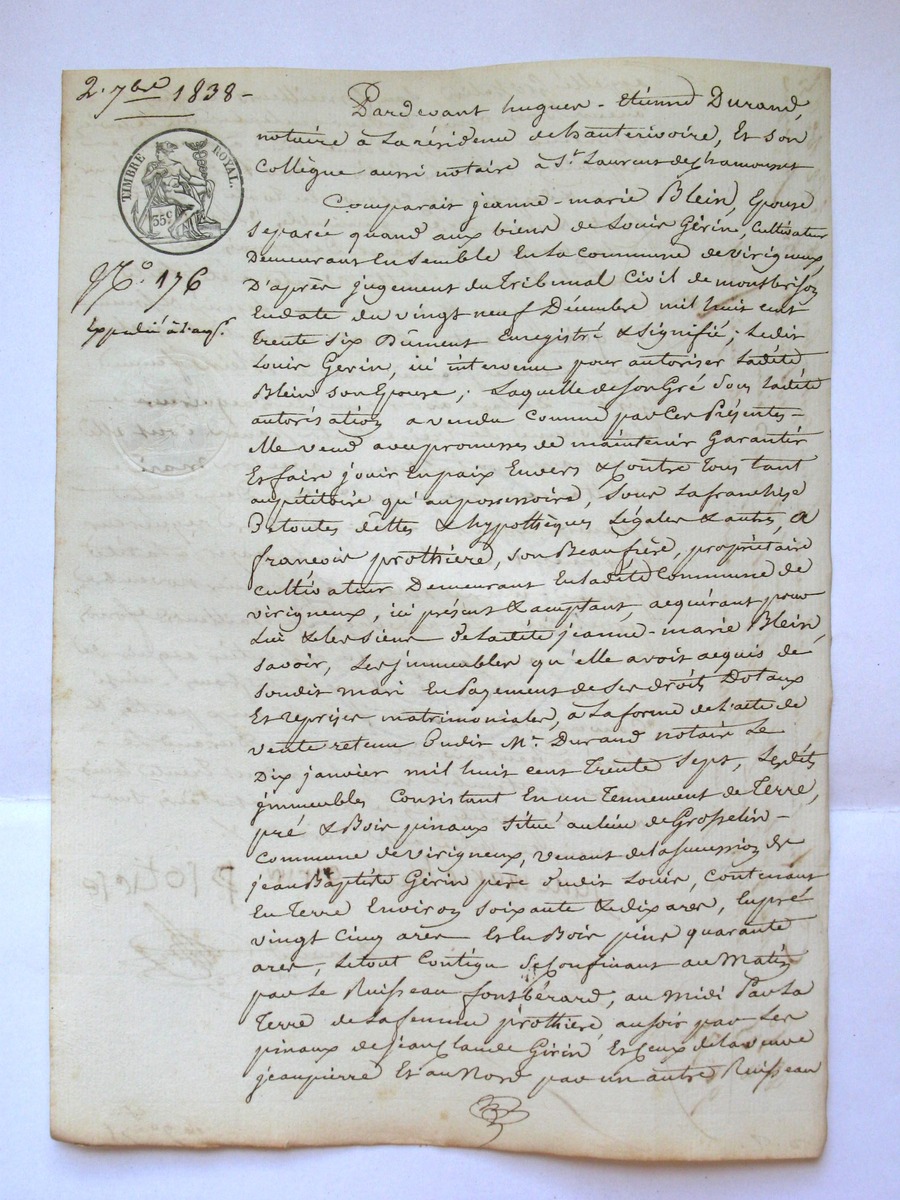 2. 7bre 1838 -
TIMBRE ROYAL.
35c
No. 176
Expédié à l'acq.r
Pardevant hugues - Etienne Durand,
notaire à La résidence de hauterivoire, Et son
Collègue aussi notaire à St. Laurent de Chamousset
Comparait jeanne-marie Blein, Epouse
séparée quand aux biens de Louis Girin, Cultivateur
Demeurant Ensemble En la commune de virigneux,
D'après jugement du Tribunal Civil de montbrison
En date du vingt neuf Décembre mil huit cent
Trente six Dûment Enregistré & signifié ; Ledit
Louis Girin, ici intervenu pour autoriser Ladite
Blein son Epouse ; Laquelle de son Gré sous Ladite
autorisation a vendu comme par Ces Présentes -
elle vend avec promesses de maintenir Garantir
Et faire jouir En paix Envers & Contre Tous tant
au pétitoire qu'au possessoire, sous la franchise
De toutes dettes & hypothèques Légales & autres, a
francois prothière, son Beaufrère, propriétaire
Cultivateur Demeurant En ladite Commune de
virigneux, ici présent & aceptant, acquérant pour
Lui & les siens de ladite jeanne-marie Blein,
savoir, Les jmmeubles qu'elle avoit acquis de
son dit mari En Payement de Ses droits Dotaux
Et reprises matrimoniales, à La forme de l'acte de
vente retenu Cudit Me. Durand notaire Le
Dix janvier mil huit cent Trente Sept, Lesdits
jmmeubles Consistant En un Tennement de Terre,
pré & Bois pinaux Situé au lieu de Grosselin -
Commune de virigneux, venant de la succession de
jean Baptiste Girin père dudit Louis, Contenant
En Terre Environ soixante & dix ares, En pré
vingt Cinq ares Et En Bois pins quarante
ares, Le tout Contigu Se Confinant au Matin
par Le Ruisseau fontbérard, au midi Par La
Terre de La femme prothière, au soir par Les
pinaux de jean Claude Girin Et Ceux de la veuve
jeanpierre Et au Nord par un autre Ruisseau